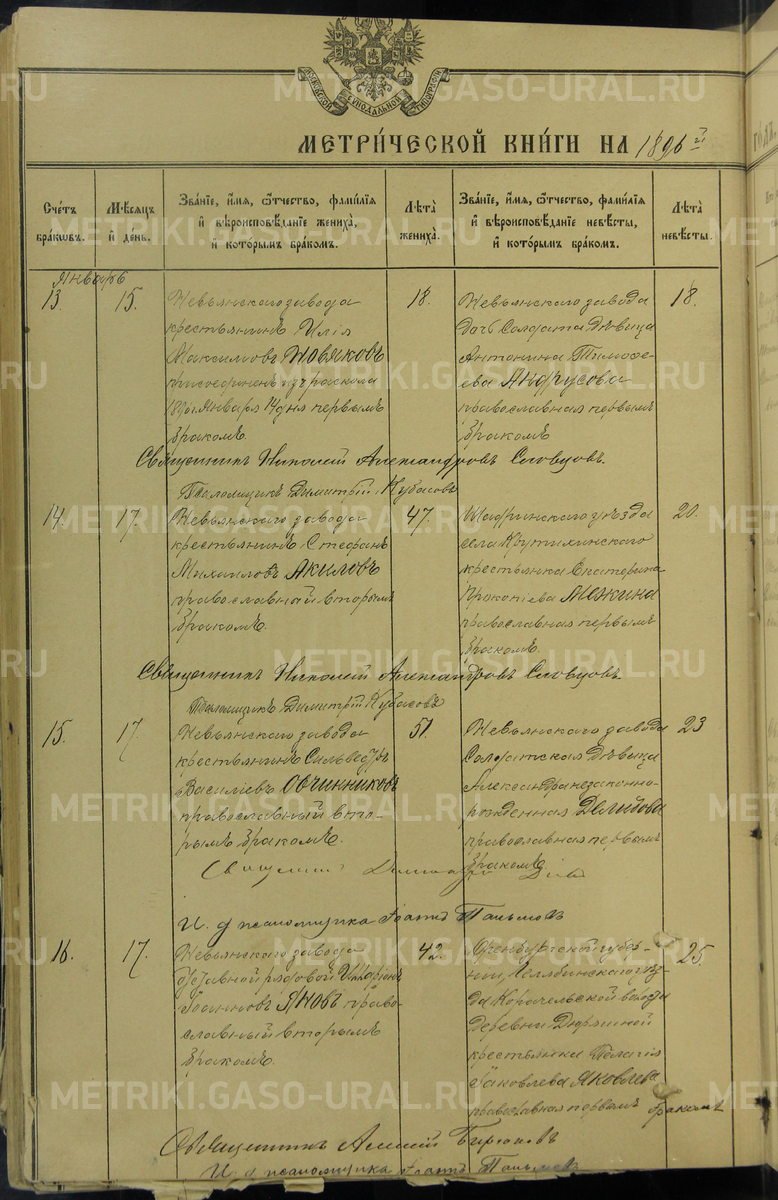 МОСКОВСКОЙ СѴНОДАЛЬНОЙ ТИПОГРАФІИ
МЕТРИ́ЧЕСКОЙ КНИ́ГИ НА 1896й
Сче́тъ бра́ковъ.
Мѣ́сяцъ и҆ де́нь.
Зва́нїе, и҆́мя, ѻ҆́тчество, фами́лїя и҆ вѣроисповѣ́данїе жениха̀, и҆ кото́рымъ бра́комъ.
Лѣ́та жениха̀.
Зва́нїе, и҆́мя, ѻ҆́тчество, фами́лїя и҆ вѣроисповѣ́данїе невѣ́сты, и҆ кото́рымъ бра́комъ.
Лѣ́та невѣ́сты.
Январь
13.
15.
Невьянскаго завода
крестьянинъ Илія
Максимовъ Новяковъ
присоединенъ изъ раскола
1896 г. Января 14 дня первымъ
бракомъ.
18.
Невьянскаго завода
дочь Солдата дѣвица
Антонина Тимофе-
ева Андрусова
православная первымъ
бракомъ
18.
Священникъ Николай Александровъ Словцовъ.
Псаломщикъ Димитрій Кубасовъ
14.
17.
Невьянскаго завода
крестьянинъ Стефанъ
Михаиловъ Акиловъ
православный вторымъ
бракомъ.
47.
Шадринскаго уѣзда
села Крутихинскаго
крестьянка Екатерина
Прокопіева Межина
православная первымъ
бракомъ.
20.
Священникъ Николай Александровъ Словцовъ
Псаломщикъ Димитрій Кубасовъ
15.
17.
Невьянскаго завода
крестьянинъ Сильвестръ
Василіевъ Овчинниковъ
православный вто-
рымъ бракомъ.
51.
Невьянскаго завода
Солдатская дѣвица
Александра незаконно-
рожденная Демидова
православная первымъ
бракомъ.
23
Священникъ
И. д псаломщика Іоаннъ Паньмовъ
16.
17.
Невьянскаго завода
отставной рядовой Илларіонъ
Іоанновъ Яновъ право-
славный вторымъ
бракомъ.
42.
Оренбургской губер-
ніи, Челябинскаго уѣз-
да Карачельской волости
деревни
крестьянка Пелагія
Іаковлева Яковлева
православная первымъ бракомъ
25
Священникъ Алексій Бирюковъ
И. д псаломщика Іоаннъ Паньмовъ
METRIKI.GASO-URAL.RU